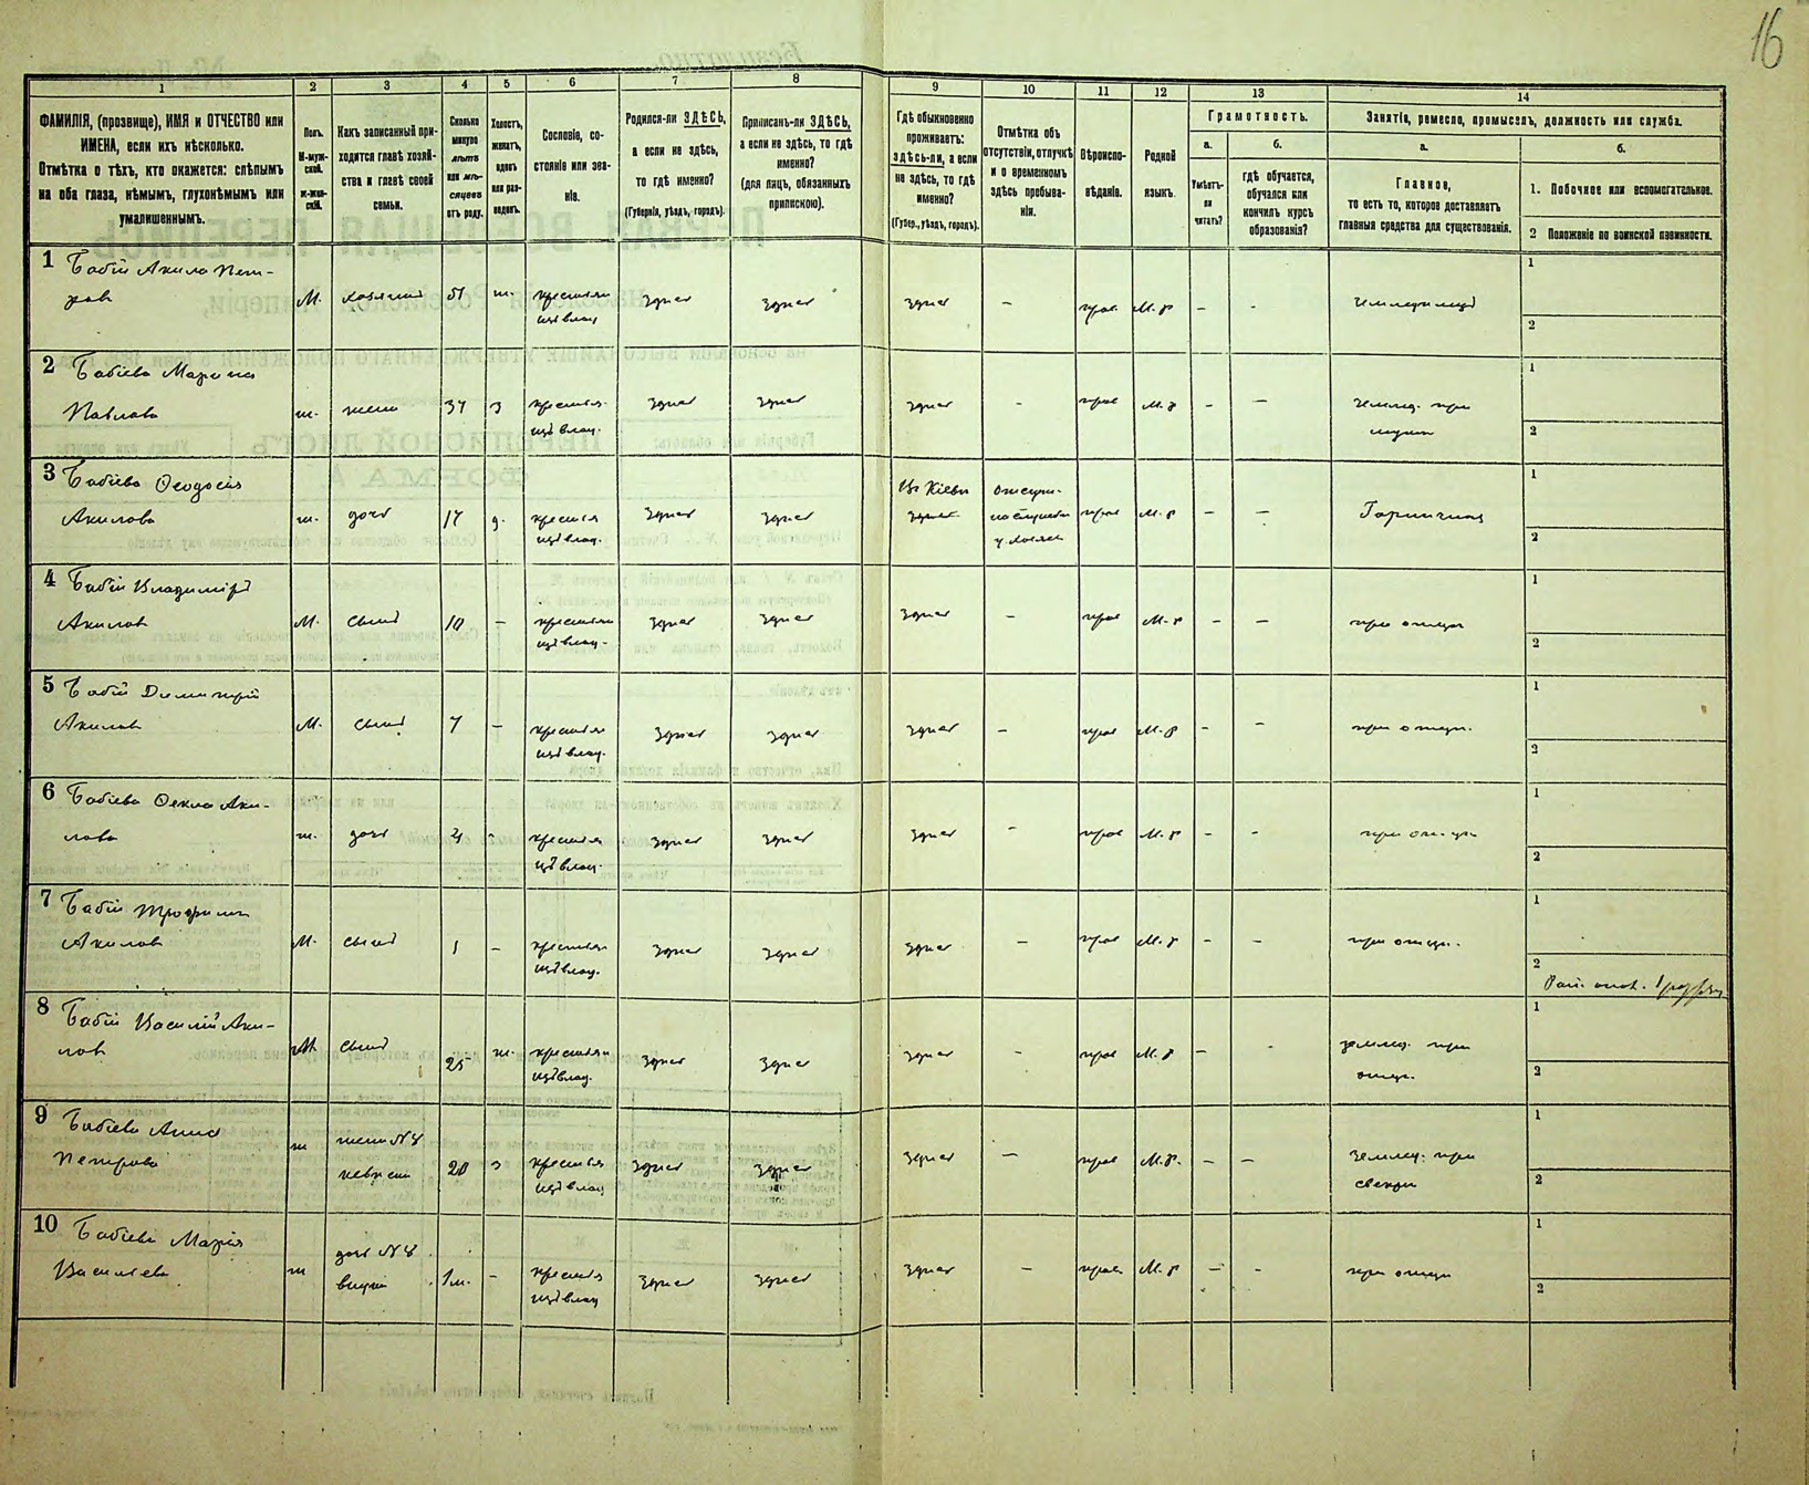 16
1
2
3
4
5
6
7
8
9
10
11
12
13
14
ФАМИЛІЯ, (прозвище), ИМЯ и ОТЧЕСТВО или
ИМЕНА, если ихъ нѣсколько.
Отмѣтка о тѣхъ, кто окажется: слѣпымъ
на оба глаза, нѣмымъ, глухонѣмымъ или
умалишеннымъ.
Полъ.
М-муж-
ской.
Ж-жен-
скій.
Какъ записанный при-
ходится главѣ хозяй-
ства и главѣ своей
семьи.
Сколько
минуло
лѣтъ
или мѣ-
сяцевъ
отъ роду.
Холостъ,
женатъ,
вдовъ
или раз-
веденъ.
Сословіе, со-
стояніе или зва-
ніе.
Родился-ли ЗДѢСЬ,
а если не здѣсь,
то гдѣ именно?
(Губернія, уѣздъ, городъ).
Приписанъ-ли ЗДѢСЬ,
а если не здѣсь, то гдѣ
именно?
(для лицъ, обязанныхъ
припискою).
Гдѣ обыкновенно
проживаетъ:
здѣсь-ли, а если
не здѣсь, то гдѣ
именно?
(Губер., уѣздъ, городъ).
Отмѣтка объ
отсутствіи, отлучкѣ
и о временномъ
здѣсь пребыва-
ніи.
Вѣроиспо-
вѣданіе.
Родной
языкъ.
Грамотность.
а.
Умѣетъ-
ли
читать?
б.
гдѣ обучается,
обучался или
кончилъ курсъ
образованія?
Занятія, ремесло, промыселъ, должность или служба.
а.
Главное,
то есть то, которое доставляетъ
главныя средства для существованія.
б.
1. Побочное или вспомогательное.
2 Положеніе по воинской повинности.
1 Бабій Акила Пет-
ровъ М. хозяинъ 51 ж. крестьян
изъ влад. здѣсь здѣсь здѣсь – прав. М.р – - земледѣлецъ
1
2
2 Бабіева Марина
Павлова ж. жена 37 з крестья.
изъ влад. здѣсь здѣсь здѣсь - прав М.р – – землед. при
мужѣ
1
2
3 Бабіева Ѳеодосія
Акилова ж. дочь 17 д. крестья
изъ влад. здѣсь здѣсь
Въ Кіевѣ
здѣсь прав М.р – – Горничная
1
2
4 Бабій Владиміръ
Акиловъ М. сынъ 10 – крестьян
изъ влад. здѣсь здѣсь здѣсь – прав М.р – – при отцѣ
1
2
5 Бабій Димитрій
Акиловъ М. сынъ 7 – крестья
изъ влад. здѣсь здѣсь здѣсь – прав М.р – – при отцѣ.
1
2
6 Бабіева Ѳекла Аки-
лова ж. дочь крестья
изъ влад. здѣсь здѣсь здѣсь – прав М.р – - при отцѣ
1
2
7 Бабій Трофимъ
Акиловъ М. сынъ 1 – крестьян
изъ влад. здѣсь здѣсь здѣсь – прав М.р – - при отцѣ.
1
2
8 Бабій Василій Аки-
ловъ М сынъ 25 ж. крестьян
изъ влад. здѣсь здѣсь здѣсь - прав М.р – - землед. при
отцѣ.
1
2
9 Бабіева Анна
Петрова ж жена №8
невѣстк 20 з крестья
изъ влад здѣсь здѣсь здѣсь – прав М.р. – – землед. при
свекрѣ
1
2
10 Бабіева Марія
Васильева ж дочь №8
внучка 1м. – крестья
изъ влад здѣсь здѣсь здѣсь – прав. М.р – - при отцѣ
1
2